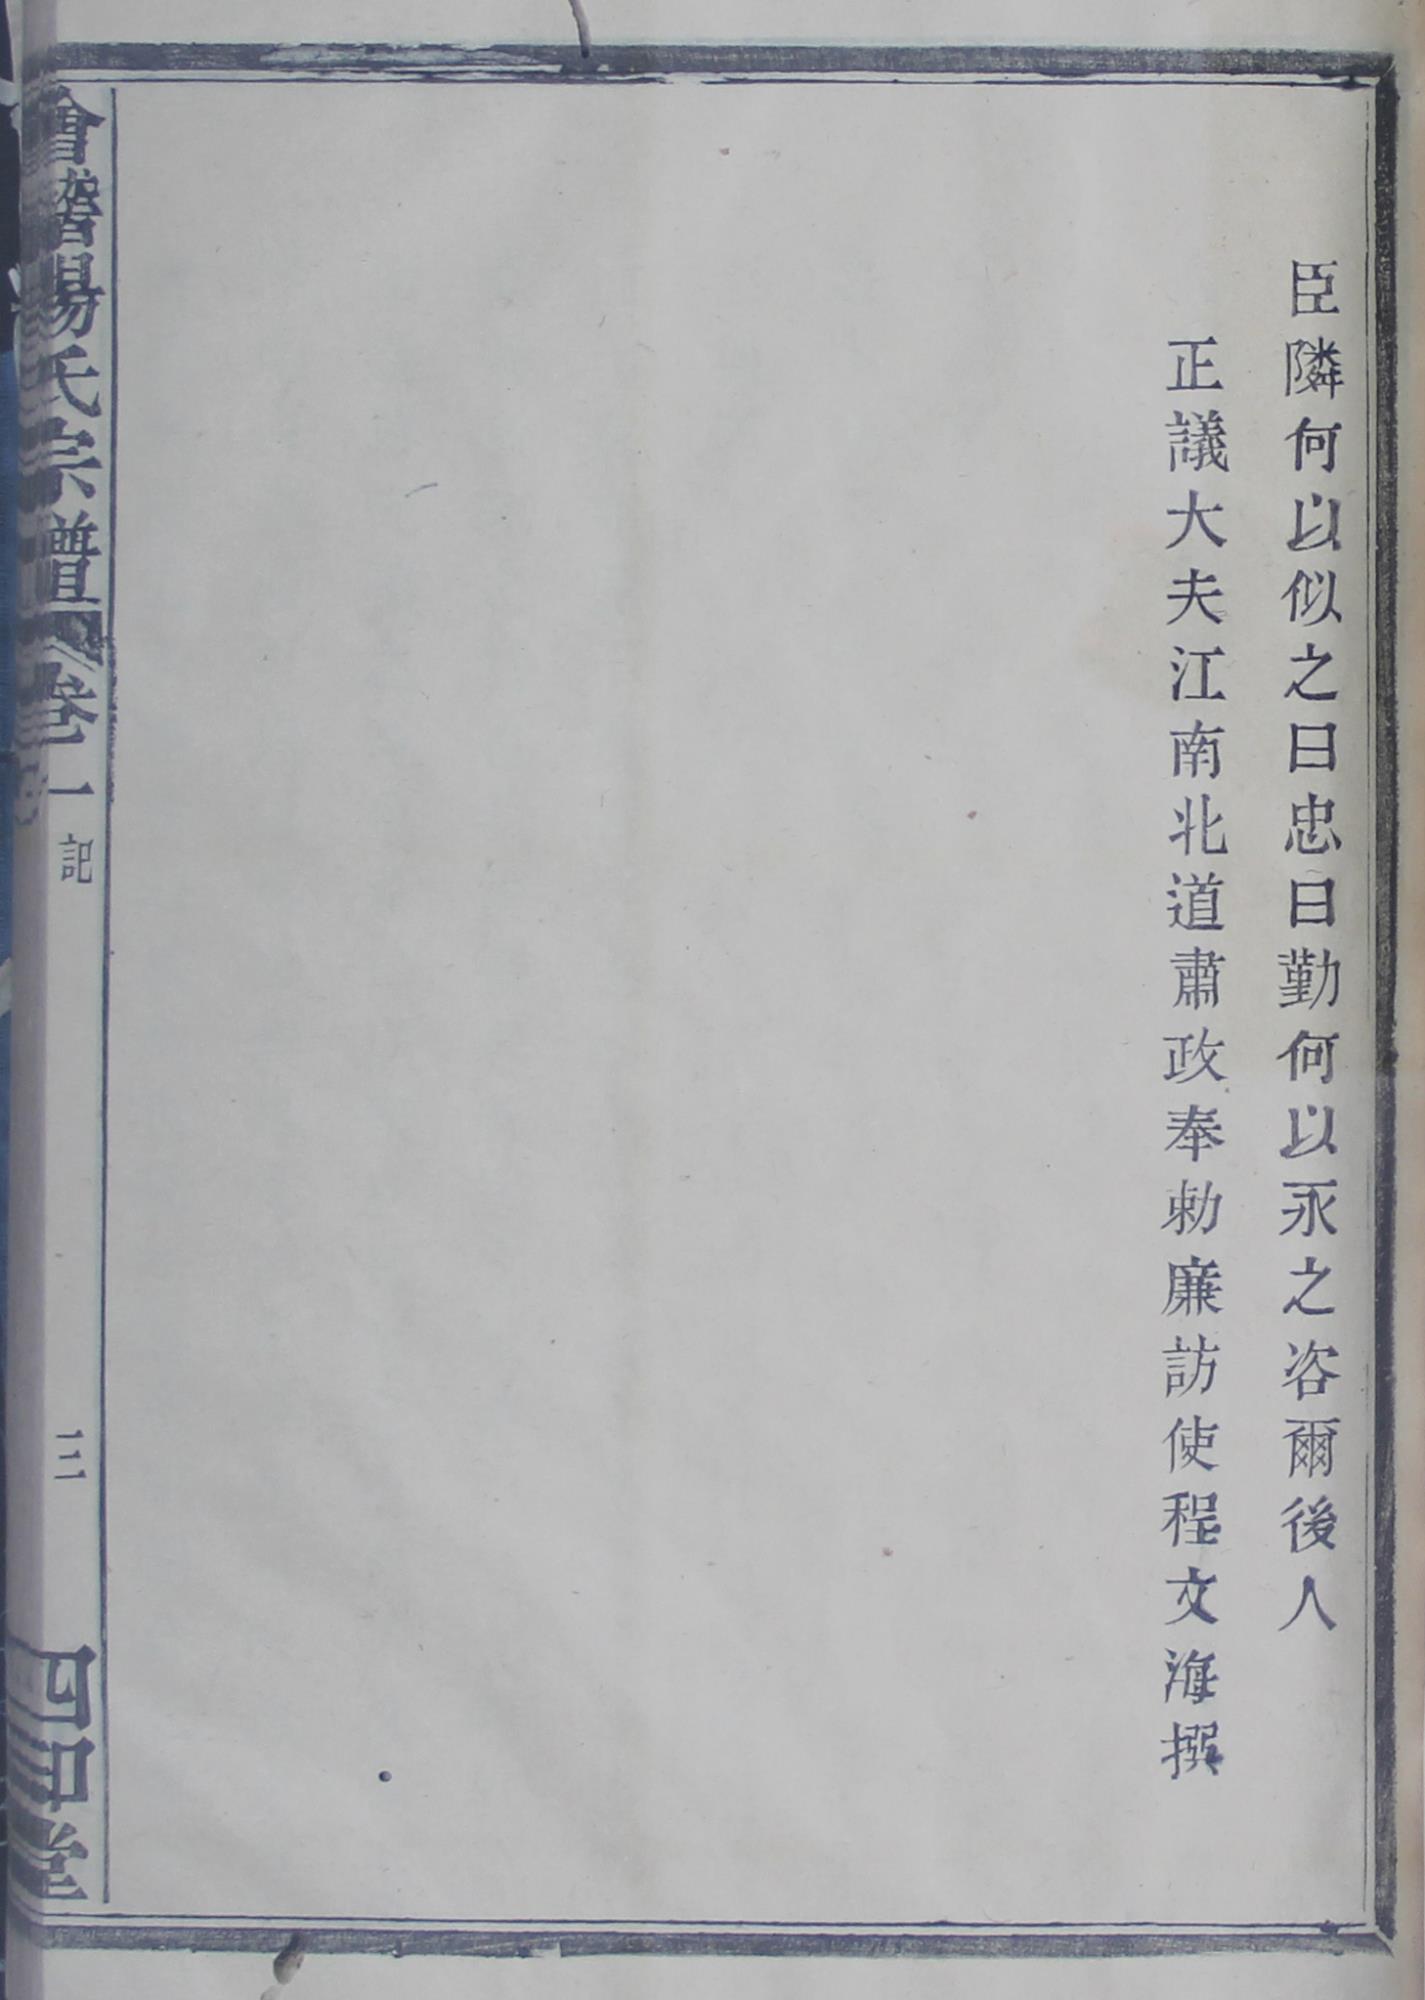 臣隣何以似之曰忠曰勤何以永之咨爾後人
正議大夫江南北道肅政奉勅廉訪使程文海撰
會稽楊氏宗譜
卷一
記
三
四印堂